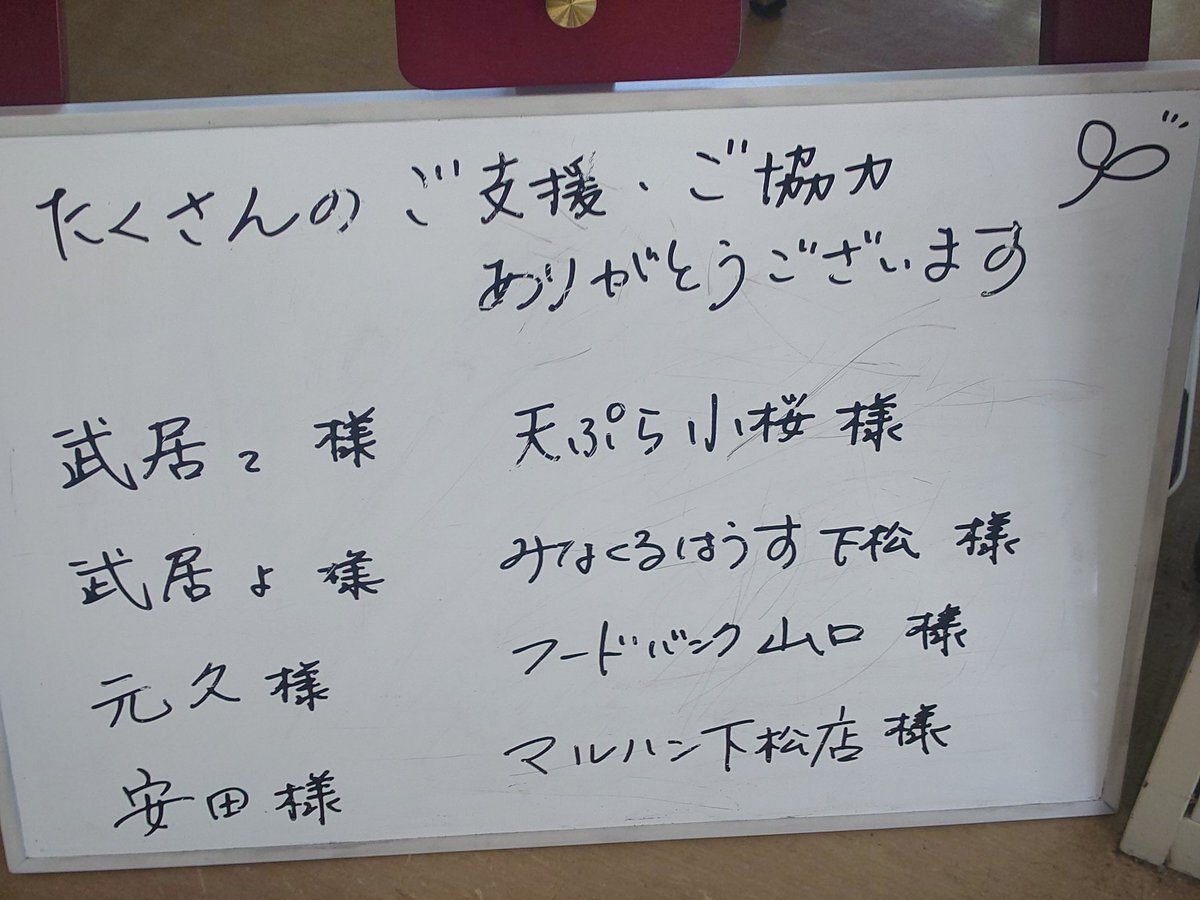 たくさんのご支援・ご協力
ありがとうございます
武居こ 様
武居よ 様
元久様
安田様
天ぷら小桜様
みなくるはうす下松 様
フードバンク山口 様
マルハン下松店様